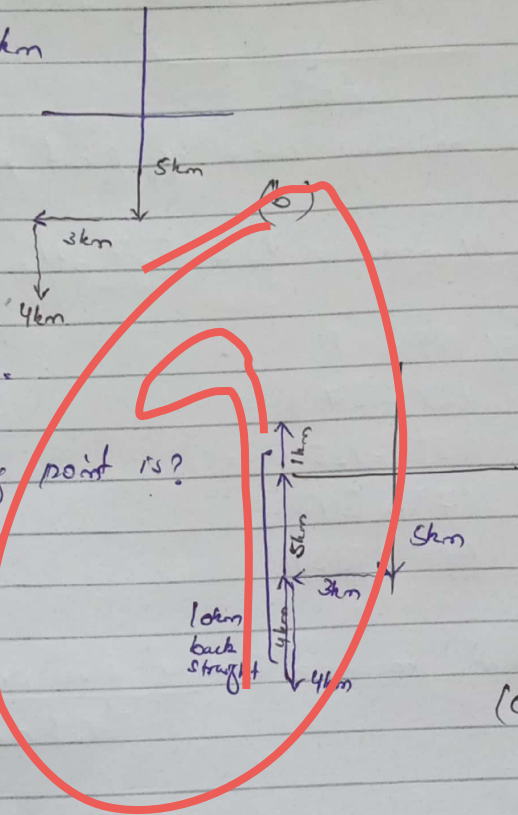 km
5km
(b)
3km
4km
point is?
1km
5km
5km
3km
10km
back
straight
4km
4km